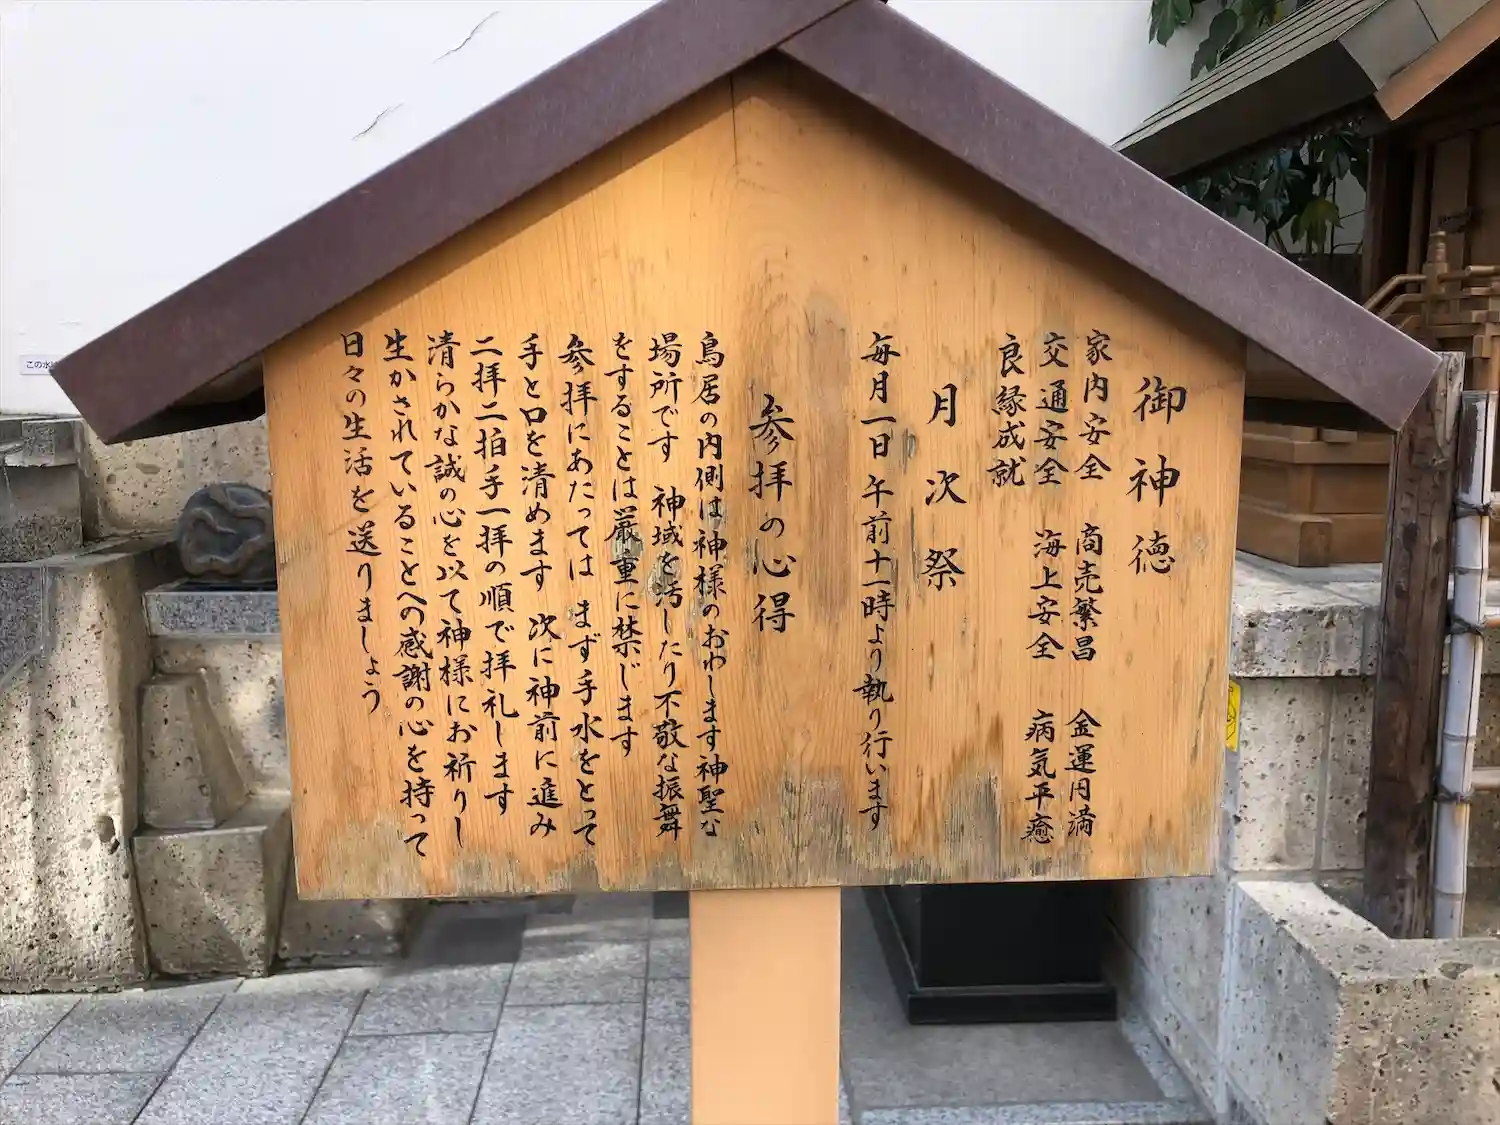 御神徳
家内安全 商売繁昌 金運円満
交通安全 海上安全 病気平癒
良縁成就
月次祭
毎月一日 午前十一時より執り行います
参拝の心得
鳥居の内側は神様のおわします神聖な
場所です 神域を汚したり不敬な振舞
をすることは厳重に禁じます
参拝にあたっては まず手水をとって
手と口を清めます 次に神前に進み
二拝二拍手一拝の順で拝礼します
清らかな誠の心を以て神様にお祈りし
生かされていることへの感謝の心を持って
日々の生活を送りましょう
この水は